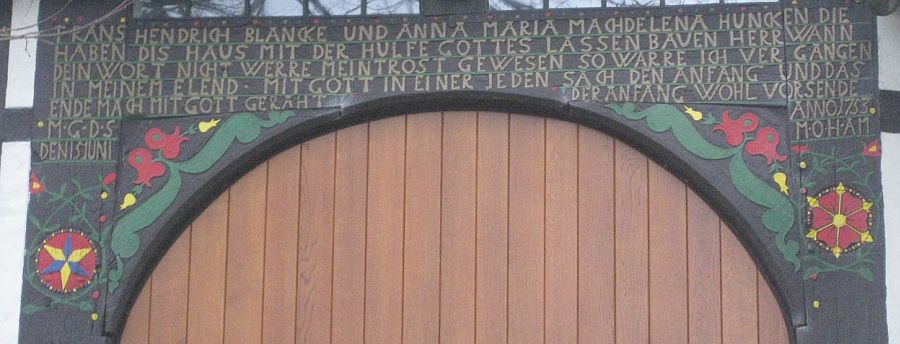 FRANS HENDRICH BLANCKE UND ANNA MARIA MACHDELENA HUNCKEN DIE
HABEN DIS HAUS MIT DER HULFE GOTTES LASSEN BAUEN HERR WANN
DEIN WORT NICHT WERRE MEIN TROST GEWESEN SO WARRE ICH VER GANGEN
IN MEINEM ELEND · MIT GOTT IN EINER JEDEN SACH DEN ANFANG UND DAS
ENDE MACH MIT GOTT GERÄHT DER ANFANG WOHL VORS ENDE
M·G·D·S ANNO 1733
DEN 15 IUNI M·O·H·A·M